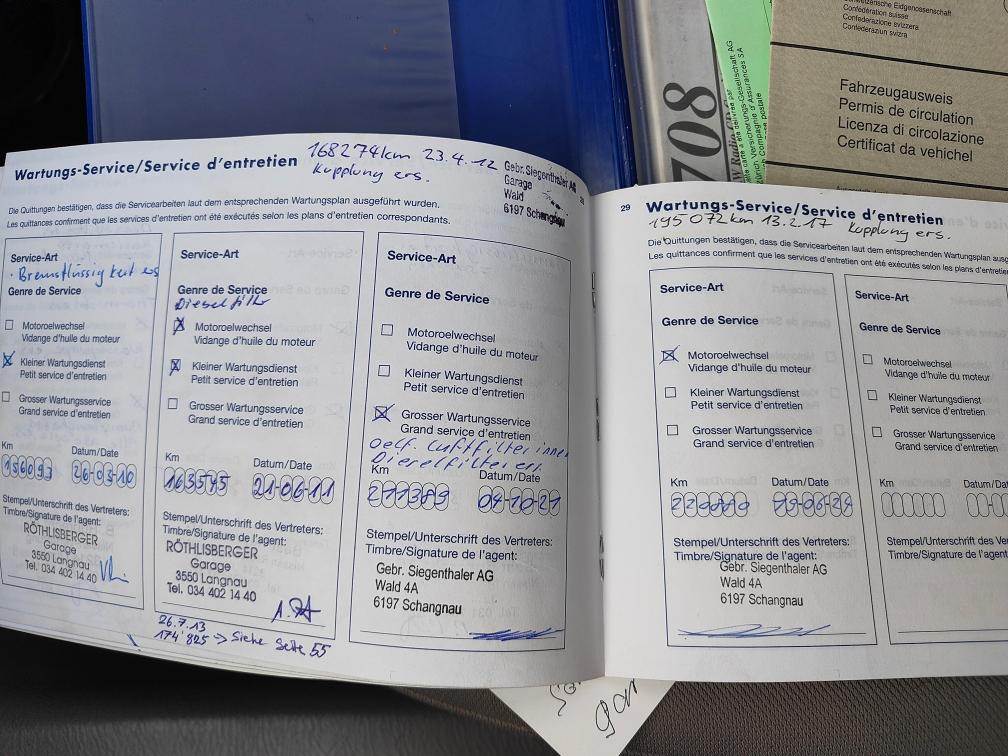 Schweizerische Eidgenossenschaft
Confédération suisse
Confederazione svizzera
Confederaziun svizra
Fahrzeugausweis
Permis de circulation
Licenza di circolazione
Certificat da vehichel
708
Wartungs-Service/Service d'entretien
168274km 23.4.12
Kupplung ers.
Gebr. Siegenthaler AG
Garage
Wald
6197 Schangnau
Die Quittungen bestätigen, dass die Servicearbeiten laut dem entsprechenden Wartungsplan ausgeführt wurden.
Les quittances confirment que les services d'entretien ont été exécutés selon les plans d'entretien correspondants.
Service-Art
Bremsflüssigkeit ers
Genre de Service
Motoroelwechsel
Vidange d'huile du moteur
Kleiner Wartungsdienst
Petit service d'entretien
Grosser Wartungsservice
Grand service d'entretien
Km
Datum/Date
156093
26-03-10
Stempel/Unterschrift des Vertreters:
Timbre/Signature de l'agent:
RÖTHLISBERGER
Garage
3550 Langnau
Tel. 034 402 14 40
Service-Art
Genre de Service
Dieselfilter
Motoroelwechsel
Vidange d'huile du moteur
Kleiner Wartungsdienst
Petit service d'entretien
Grosser Wartungsservice
Grand service d'entretien
Km
Datum/Date
163545
21-06-11
Stempel/Unterschrift des Vertreters:
Timbre/Signature de l'agent:
RÖTHLISBERGER
Garage
3550 Langnau
Tel. 034 402 14 40
26.7.13
174'825 → Siehe Seite 55
Service-Art
Genre de Service
Motoroelwechsel
Vidange d'huile du moteur
Kleiner Wartungsdienst
Petit service d'entretien
Grosser Wartungsservice
Grand service d'entretien
Oelf. Luftfilter innen
Dieselfilter ers.
Km
Datum/Date
211389
04-10-21
Stempel/Unterschrift des Vertreters:
Timbre/Signature de l'agent:
Gebr. Siegenthaler AG
Wald 4A
6197 Schangnau
29
Wartungs-Service/Service d'entretien
195072km 13.2.17 Kupplung ers.
Die Quittungen bestätigen, dass die Servicearbeiten laut dem entsprechenden Wartungsplan
Les quittances confirment que les services d'entretien ont été exécutés selon les plans d'entretien
Service-Art
Genre de Service
Motoroelwechsel
Vidange d'huile du moteur
Kleiner Wartungsdienst
Petit service d'entretien
Grosser Wartungsservice
Grand service d'entretien
Km
Datum/Date
Stempel/Unterschrift des Vertreters:
Timbre/Signature de l'agent:
Gebr. Siegenthaler AG
Wald 4A
6197 Schangnau
Service-Art
Genre de Service
Motoroelwechsel
Vidange d'huile du moteur
Kleiner Wartungsdienst
Petit service d'entretien
Grosser Wartungsservice
Grand service d'entretien
Km
Stempel/Unterschrift des
Timbre/Signature de l'agent